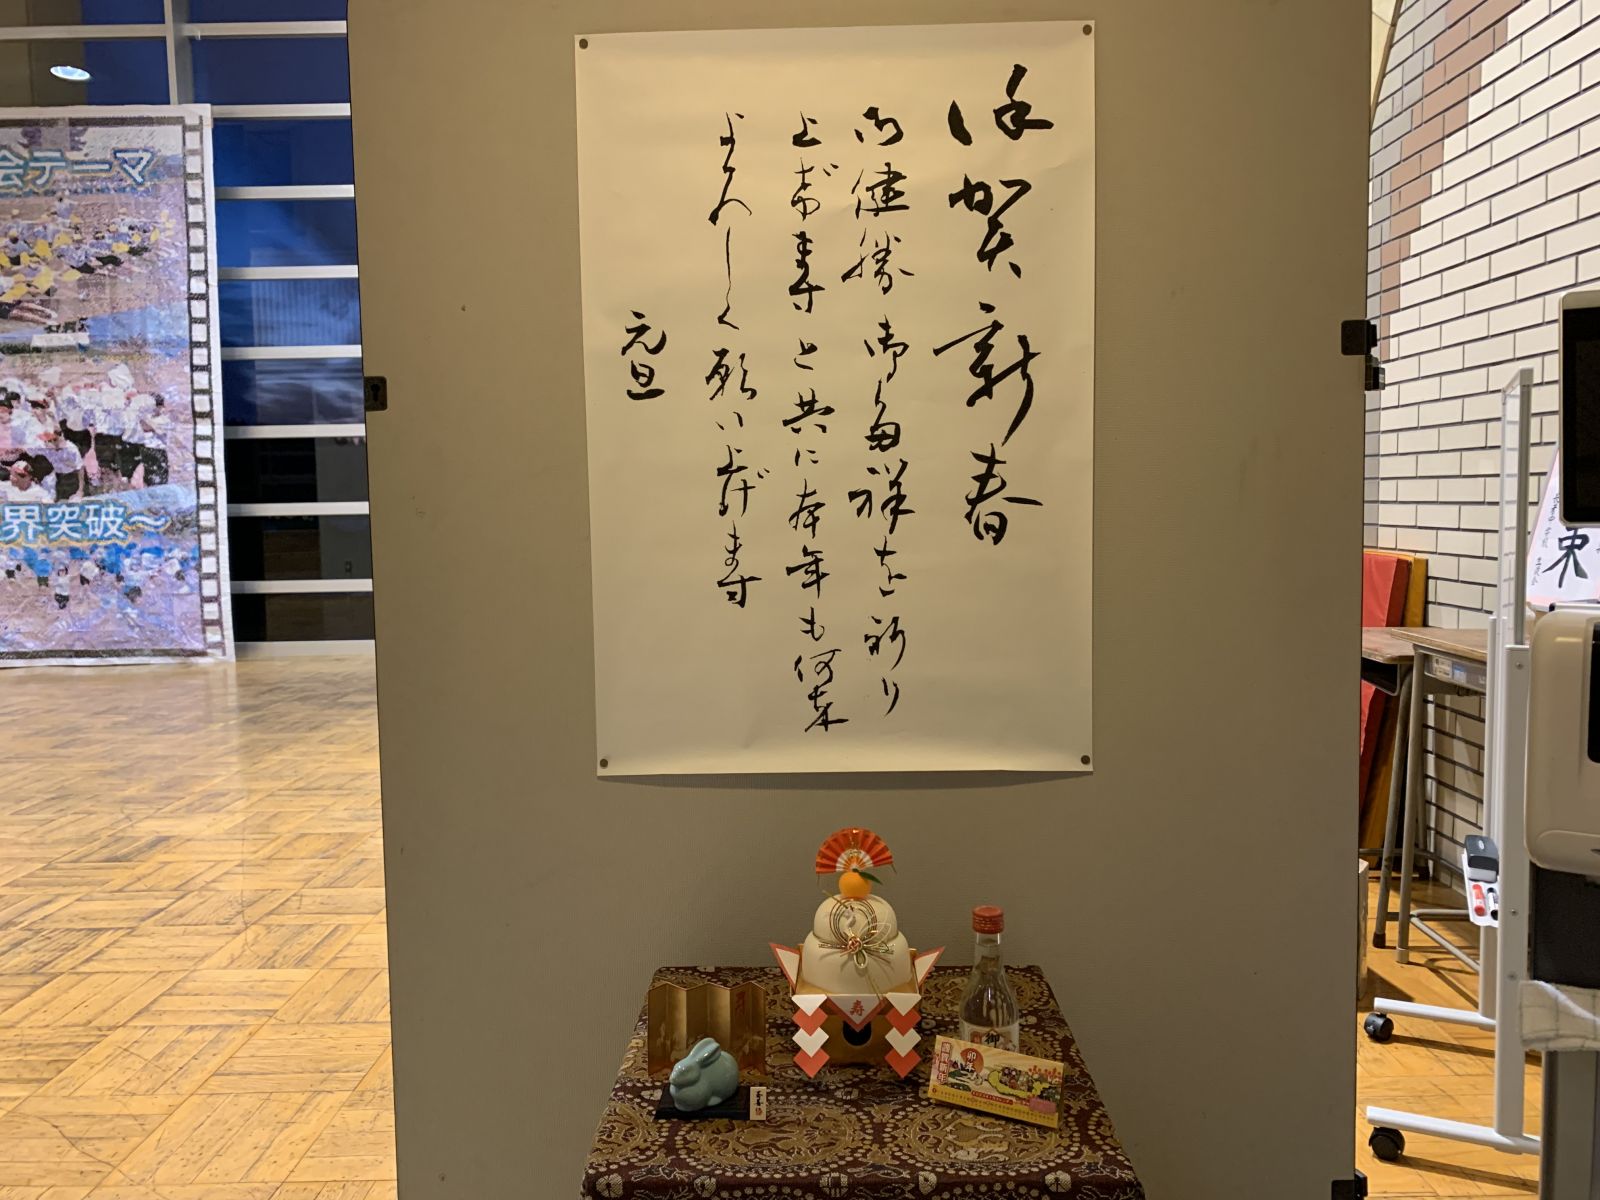 保賀新春
御健勝御多祥を祈り
上げます と共に本年も何卒
よろしく願い上げます
元旦
会テーマ
界突破〜
寿
御
卯年
謹賀新年
束